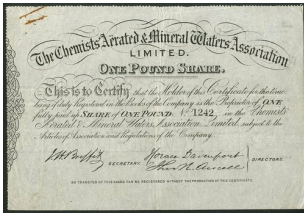 The Chemists Aerated & Mineral Waters Association
LIMITED.
ONE POUND SHARE.
This is to Certify that the Holder of this Certificate for the time
being if duly Registered in the Books of the Company is the Proprietor of ONE
fully paid up SHARE of ONE POUND, No. 1242, in the Chemists
Aerated & Mineral Waters Association Limited, subject to the
Articles of Association and Regulations of the Company.
SECRETARY. Horace Davenport
DIRECTORS.
NO TRANSFER OF THIS SHARE CAN BE REGISTERED WITHOUT THE PRODUCTION OF THIS CERTIFICATE.